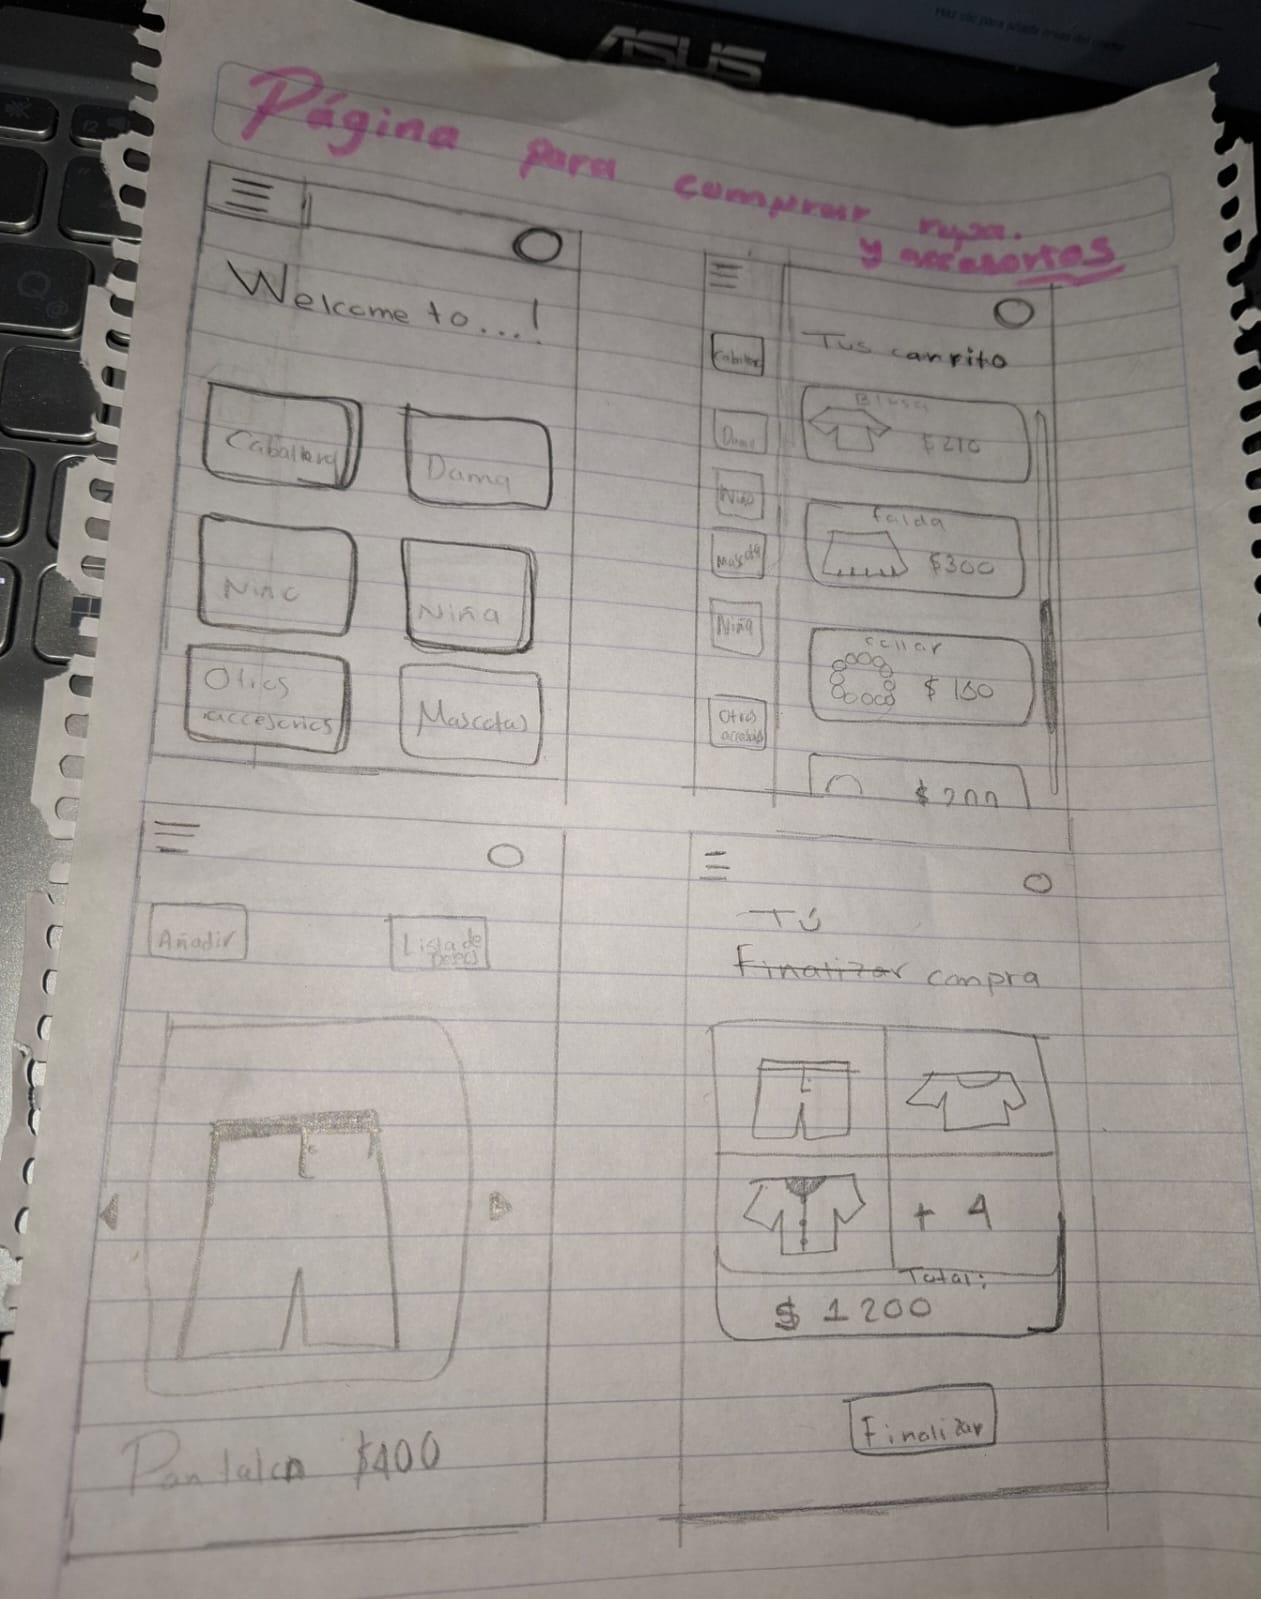 ASUS
Página para comprar ropa.
y accesorios
Welcome to...!
Caballero
Dama
Niño
Niña
Otros
accesorios
Mascotas
Tus carrito
Caballer
Dama
Niño
Mascota
Niña
Otros
accesorios
Blusa
$ 210
falda
$300
collar
$ 150
$ 200
Añadir
Lista de
Pantalon $400
Tú
Finalizar compra
+ 4
Total:
$ 1200
Finalizar